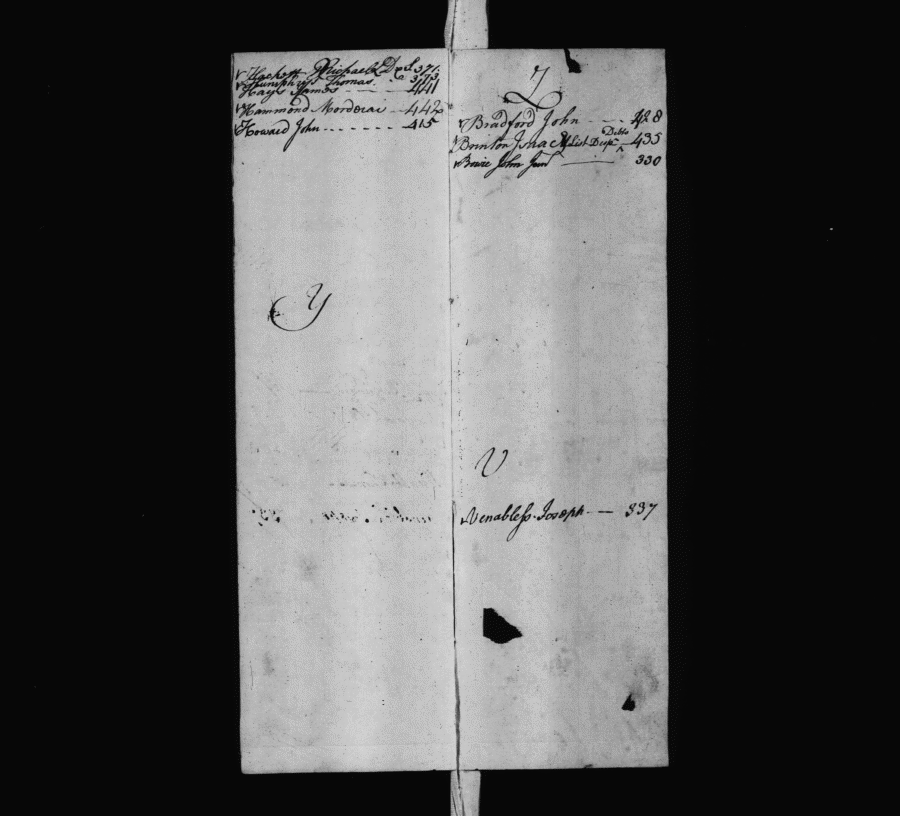 Hackett Michael D 371
Humphrys Thomas 373
Hays James 441
Hammond Mordecai 442
Howard John 415
Y
Z
Bradford John 428
Brinton Isaac List Debts 435
Bowie John Junr 330
V
Venabless Joseph 337